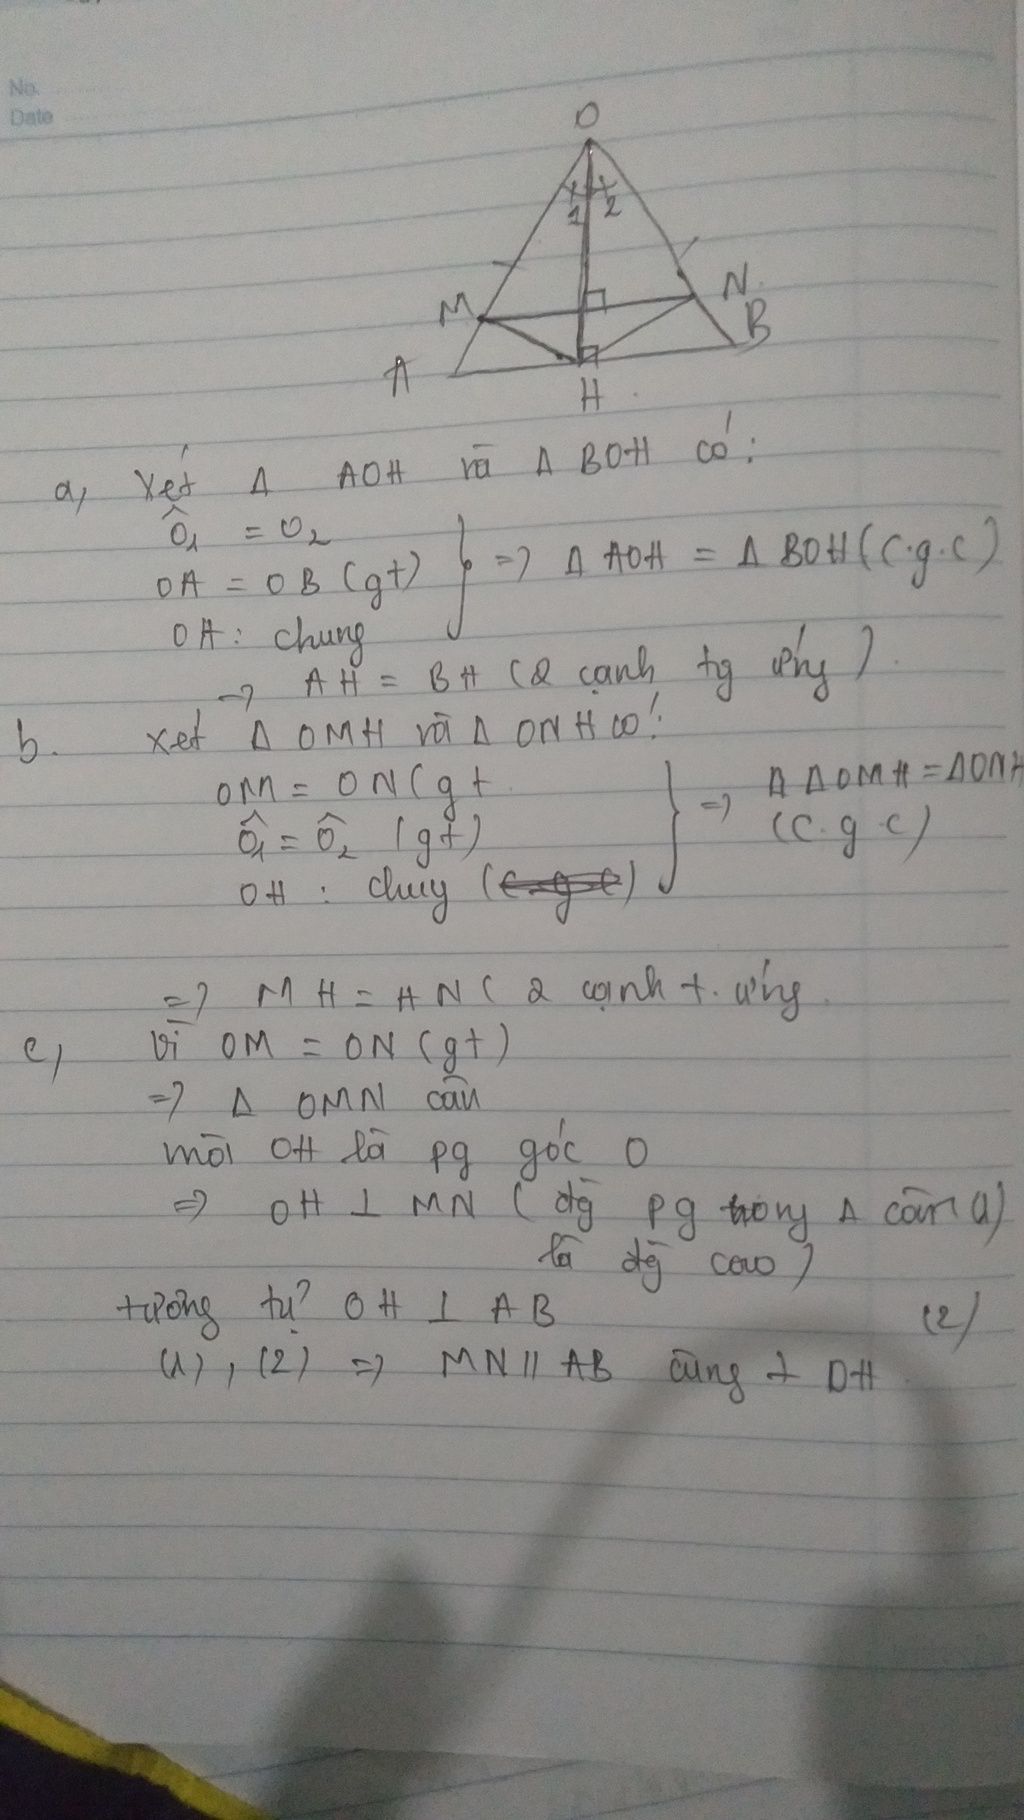 No.
Date
O
1 2
M
N.
B
A
H
a, Xét Δ AOH và Δ BOH có:
Ô1 = O2
OA = OB (gt) } => Δ AOH = Δ BOH (c.g.c)
OH: chung
-> AH = BH (2 cạnh tg ứng)
b. Xét Δ OMH và Δ ONH có:
OM = ON (gt
Ô1 = Ô2 (gt) } => Δ ΔOMH = ΔONH
OH : chug (c.g.c) (c.g.c)
=> MH = HN ( 2 cạnh t. ứng
c, Vì OM = ON (gt)
=> Δ OMN cân
mời OH là pg góc O
=> OH ⊥ MN ( đg pg trong Δ cân (1)
là đg cao )
tương tự? OH ⊥ AB (2)
(1), (2) => MN // AB cùng ⊥ OH